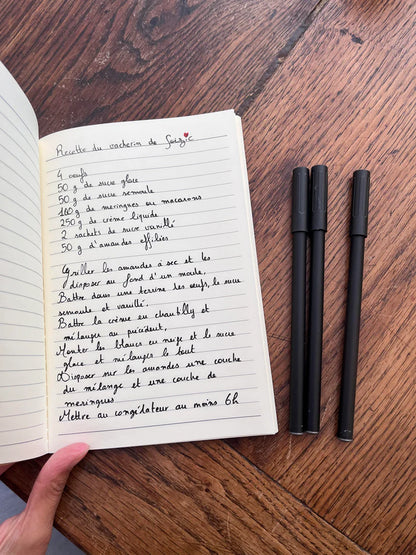 Recette du vacherin de Soizic
4 oeufs
50 g de sucre glace
50 g de sucre semoule
160 g de meringues ou macarons
250 g de crème liquide
2 sachets de sucre vanillé
50 g d'amandes effilées
Griller les amandes à sec et les
disposer au fond d'un moule,
Battre dans une terrine les oeufs, le sucre
semoule et vanillé.
Battre la crème en chantilly et
mélanger au précédent,
Monter les blancs en neige et le sucre
glace et mélanger le tout
Disposer sur les amandes une couche
du mélange et une couche de
meringues
Mettre au congélateur au moins 6h